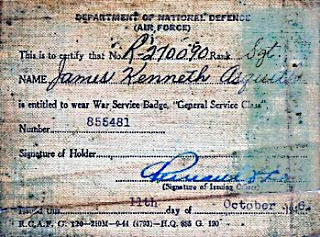 DEPARTMENT OF NATIONAL DEFENCE
(AIR FORCE)
This is to certify that No. R-270090 Rank Sgt.
NAME James Kenneth
is entitled to wear War Service Badge, "General Service Class"
Number 855481
Signature of Holder
(Signature of Issuing Officer)
Issued this 11th day of October 1946
R.C.A.F. G. 120—210M—9-44 (4793)—H.Q. 885 G. 120